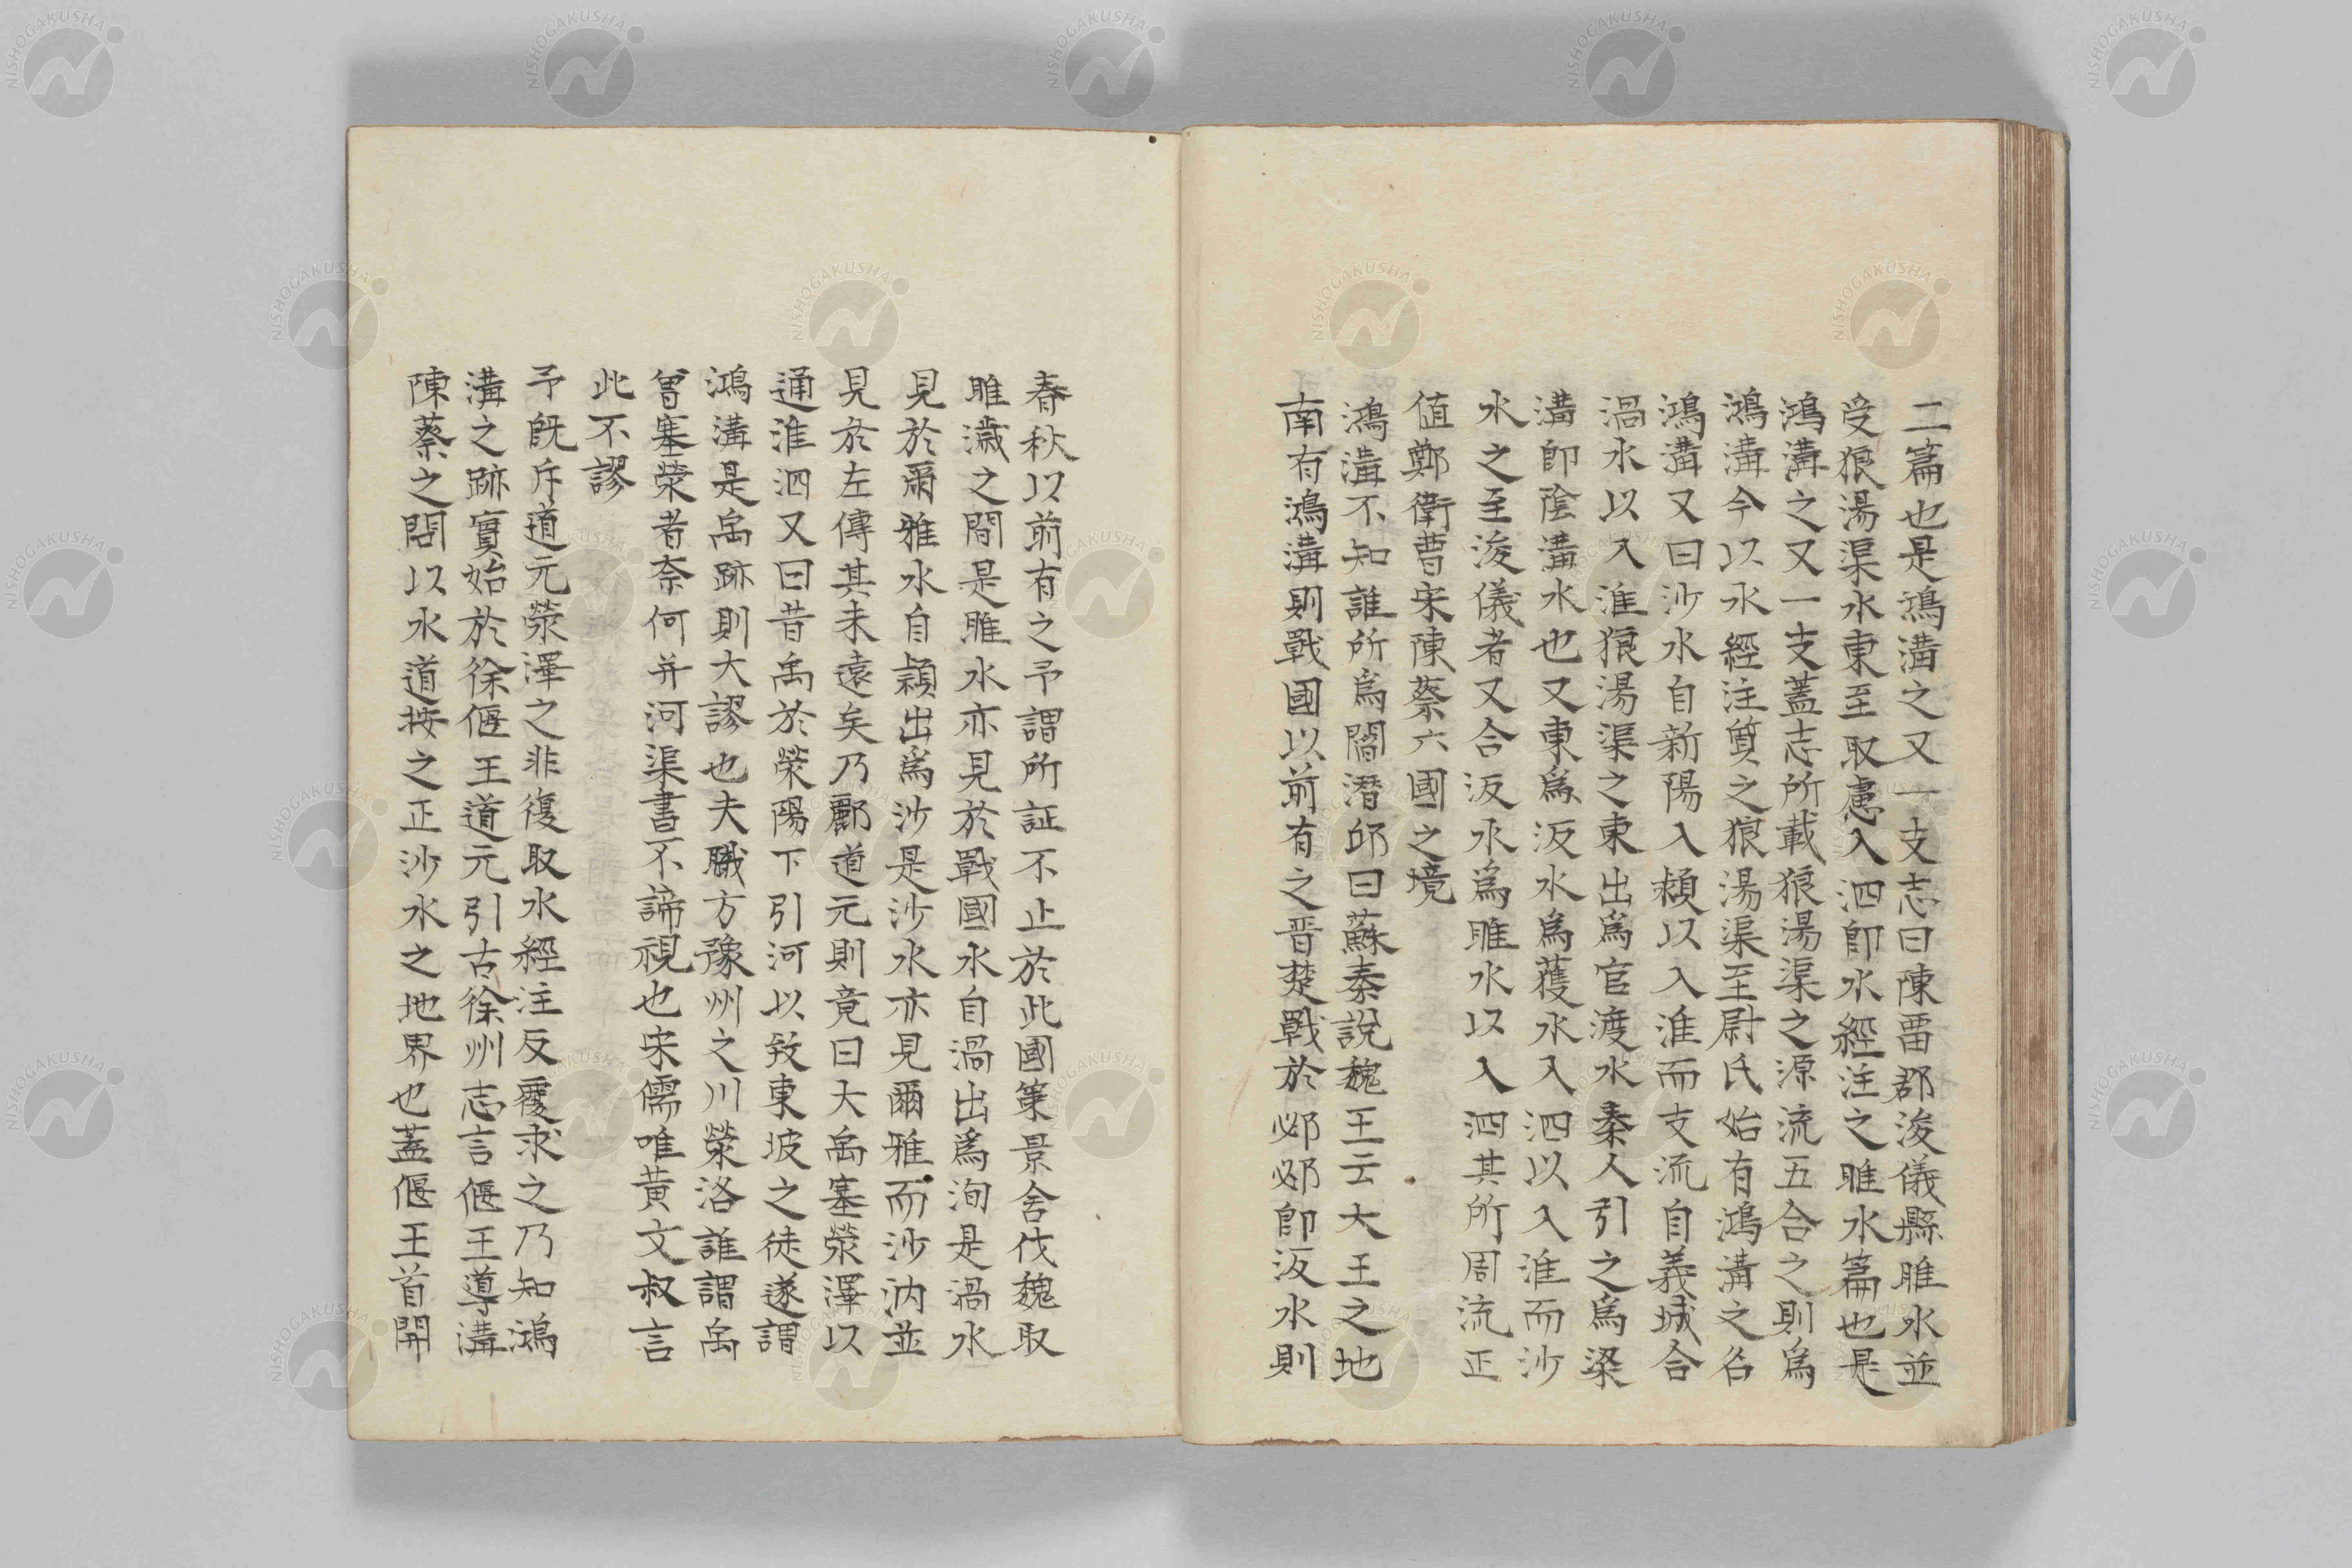 二篇也是鴻溝之又一支志曰陳畱郡浚儀縣睢水並
受狼湯渠水東至取慮入泗卽水經注之睢水篇也是
鴻溝之又一支蓋志所載狼湯渠之源流五合之則爲
鴻溝今以水經注質之狼湯渠至尉氏始有鴻溝之名
鴻溝又曰沙水自新陽入潁以入淮而支流自義城合
渦水以入淮狼湯渠之東出爲官渡水秦人引之爲梁
溝卽陰溝水也又東爲汳水爲蒦水入泗以入淮而沙
水之至浚儀者又合汳水爲睢水以入泗其所周流正
值鄭衛曹宋陳蔡六國之境
鴻溝不知誰所爲閻潛邱曰蘇秦說魏王云大王之地
南有鴻溝則戰國以前有之晋楚戰於邲邲卽汳水則
春秋以前有之予謂所証不止於此國策景舍伐魏取
睢濊之間是睢水亦見於戰國水自渦出爲洵是渦水
見於爾雅水自潁出爲沙是沙水亦見爾雅而沙汭並
見於左傳其来遠矣乃酈道元則竟曰大禹塞滎澤以
通淮泗又曰昔禹於滎陽下引河以致東坡之徒遂謂
鴻溝是禹跡則大謬也夫職方豫州之川滎洛誰謂禹
曾塞滎者奈何并河渠書不諦視也宋儒唯黄文叔言
此不謬
予旣斥道元滎澤之非復取水經注反覆求之乃知鴻
溝之跡實始於徐偃王道元引古徐州志言偃王導溝
陳蔡之間以水道按之正沙水之地界也蓋偃王首開
NISHOGAKUSHA